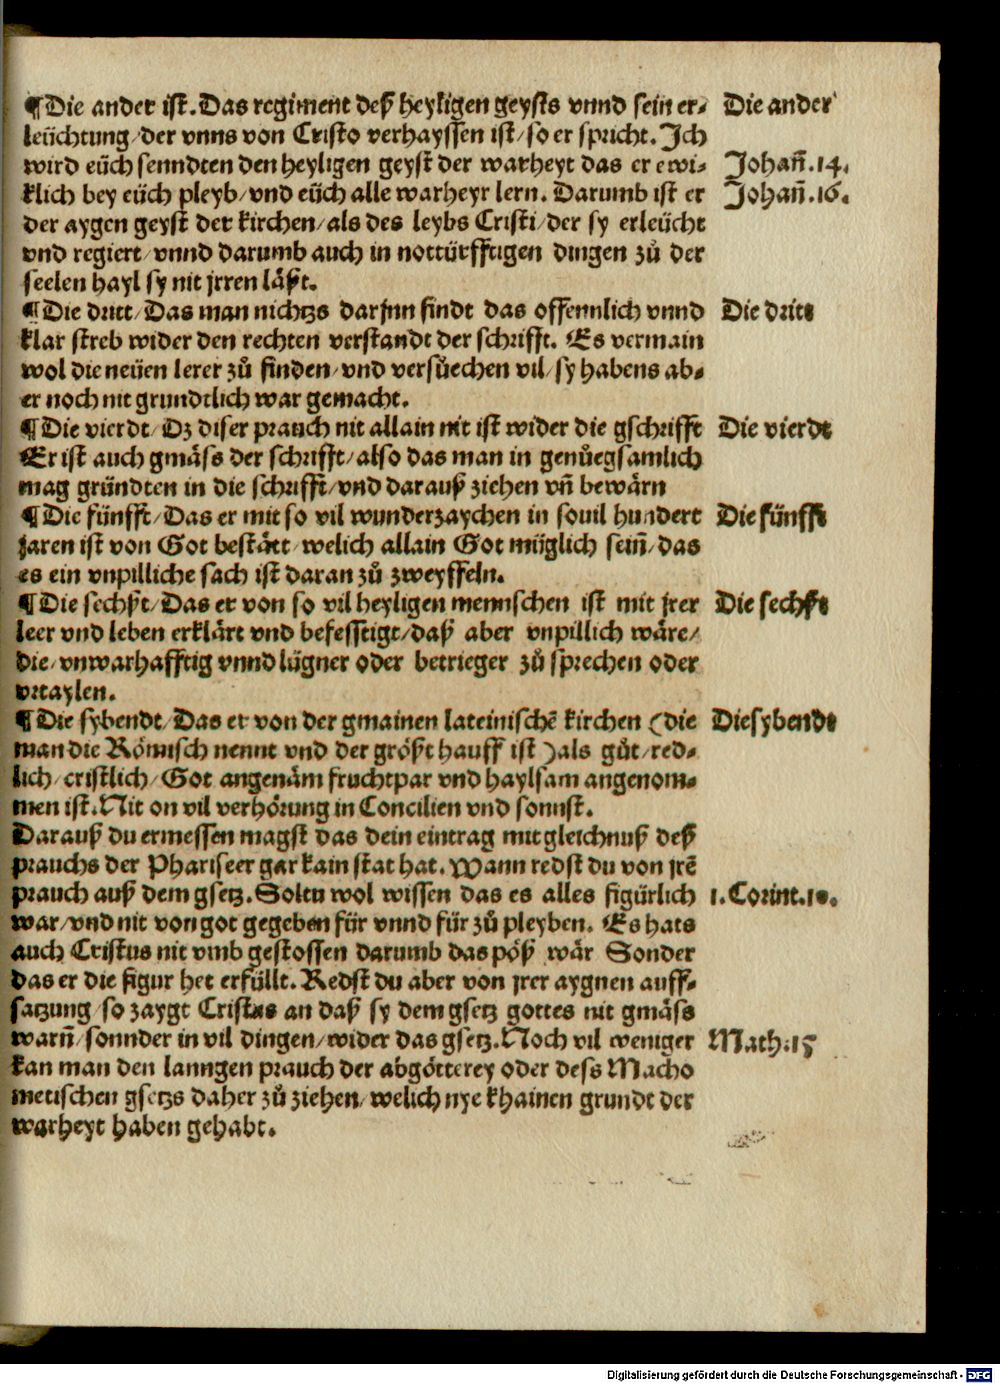 ¶Die ander ist. Das regiment deß heyligen geysts vnnd sein er⸗
leüchtung/der vnns von Cristo verhayssen ist/so er spricht. Jch
wird eüch senndten den heyligen geyst der warheyt das er ewi⸗
klich bey eüch pleyb/vnd eüch alle warheyt lern. Darumb ist er
der aygen geyst der kirchen/als des leybs Cristi/der sy erleücht
vnd regiert/vnnd darumb auch in nottürfftigen dingen zů der
seelen hayl sy nit jrren läßt.
¶Die dritt/Das man nichtzs darjnn findt das offennlich vnnd
klar streb wider den rechten verstandt der schrifft. Es vermain
wol die neüen lerer zů finden/vnd versůechen vil/sy habens ab⸗
er noch nit grundtlich war gemacht.
¶Die vierdt/Dz diser prauch nit allain nit ist wider die gschrifft
Er ist auch gmäss der schrifft/also das man in genůegsamlich
mag gründten in die schrifft/vnd darauß ziehen vñ bewärn
¶Die fünfft/Das er mit so vil wunderzaychen in souil hundert
jaren ist von Got bestätt/welich allain Got müglich sein̄/das
es ein vnpilliche sach ist daran zů zweyffeln.
¶Die sechßt/Das er von so vil heyligen mennschen ist mit jrer
leer vnd leben erklärt vnd befesstigt/daß aber vnpillich wäre/
die/vnwarhafftig vnnd lügner oder betrieger zů sprechen oder
vrtaylen.
¶Die sybendt/Das er von der gmainen lateinischē kirchen (die
man die Römisch nennt vnd der größt hauff ist) als gůt/red⸗
lich/cristlich/Got angenäm fruchtpar vnd haylsam angenom⸗
men ist. Nit on vil verhörung in Concilien vnd sonnst.
Darauß du ermessen magst das dein eintrag mit gleichnuß deß
prauchs der Phariseer gar kain stat hat. Wann redst du von jrē
prauch auß dem gsetz. Soltu wol wissen das es alles figürlich
war/vnd nit von got gegeben für vnnd für zů pleyben. Es hats
auch Cristus nit vmb gestossen darumb das pöß wär Sonder
das er die figur het erfüllt. Redst du aber von jrer aygnen auff⸗
satzung/so zaygt Cristus an daß sy dem gsetz gottes nit gmäss
warñ/sonnder in vil dingen/wider das gsetz. Noch vil weniger
kan man den lanngen prauch der abgötterey oder dess Macho
metischen gsetzs daher zů ziehen/welich nye khainen grundt der
warheyt haben gehabt.
Die ander
Johañ.14.
Johañ.16.
Die dritt
Die vierdt
Die fünfft
Die sechßt
Die sybendt
1. Corint.10.
Math.15
Digitalisierung gefördert durch die Deutsche Forschungsgemeinschaft - DFG